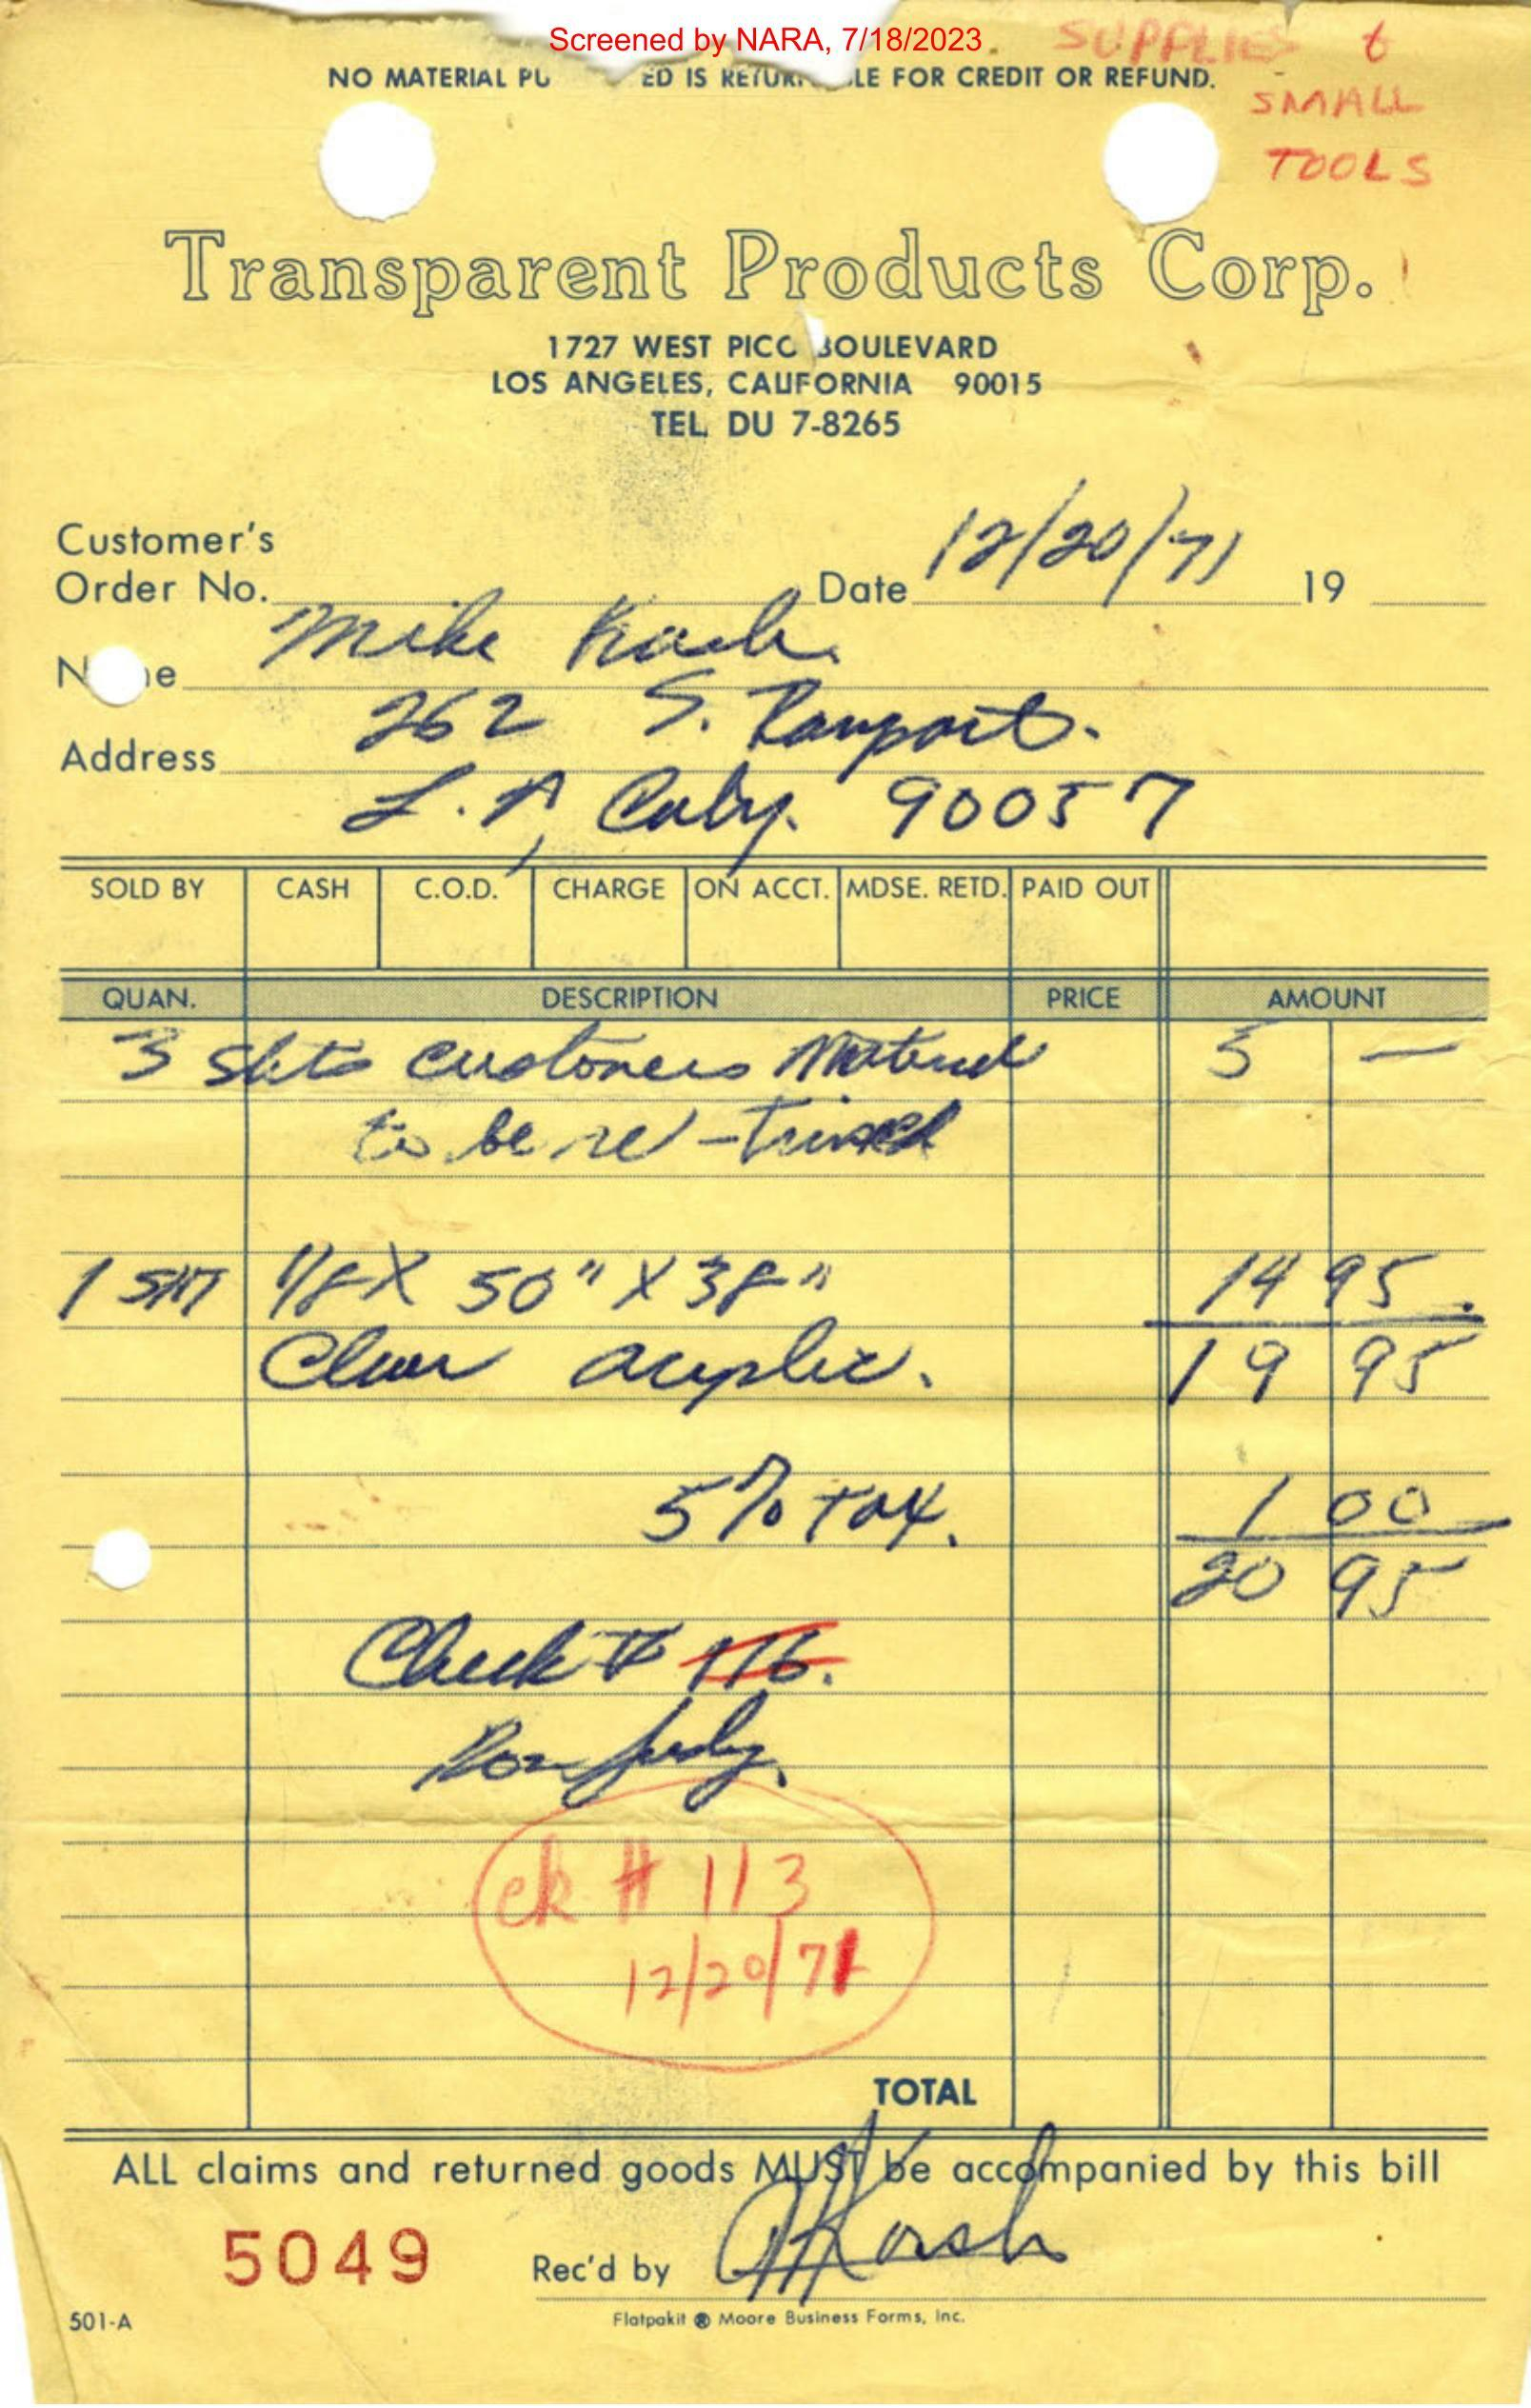 Screened by NARA, 7/18/2023
SUPPLIES &
SMALL
TOOLS
NO MATERIAL PU ED IS RETUR LE FOR CREDIT OR REFUND.
Transparent Products Corp.
1727 WEST PICO BOULEVARD
LOS ANGELES, CALIFORNIA 90015
TEL. DU 7-8265
Customer's
Order No. Date 12/20/71 19
N e Mike
Address 262 S. Rampart.
L.A, Calif. 90057
SOLD BY CASH C.O.D. CHARGE ON ACCT. MDSE. RETD. PAID OUT
QUAN. DESCRIPTION PRICE AMOUNT
3 Shts customers Material 5 —
to be re-
1 SHT 1/8 X 50" X 38" 14 95
Clear acrylic. 19 95
5% TAX. 1 00
20 95
Check # 116.
ck # 113
12/20/71
TOTAL
ALL claims and returned goods MUST be accompanied by this bill
5049 Rec'd by
501-A Flatpakit ® Moore Business Forms, Inc.